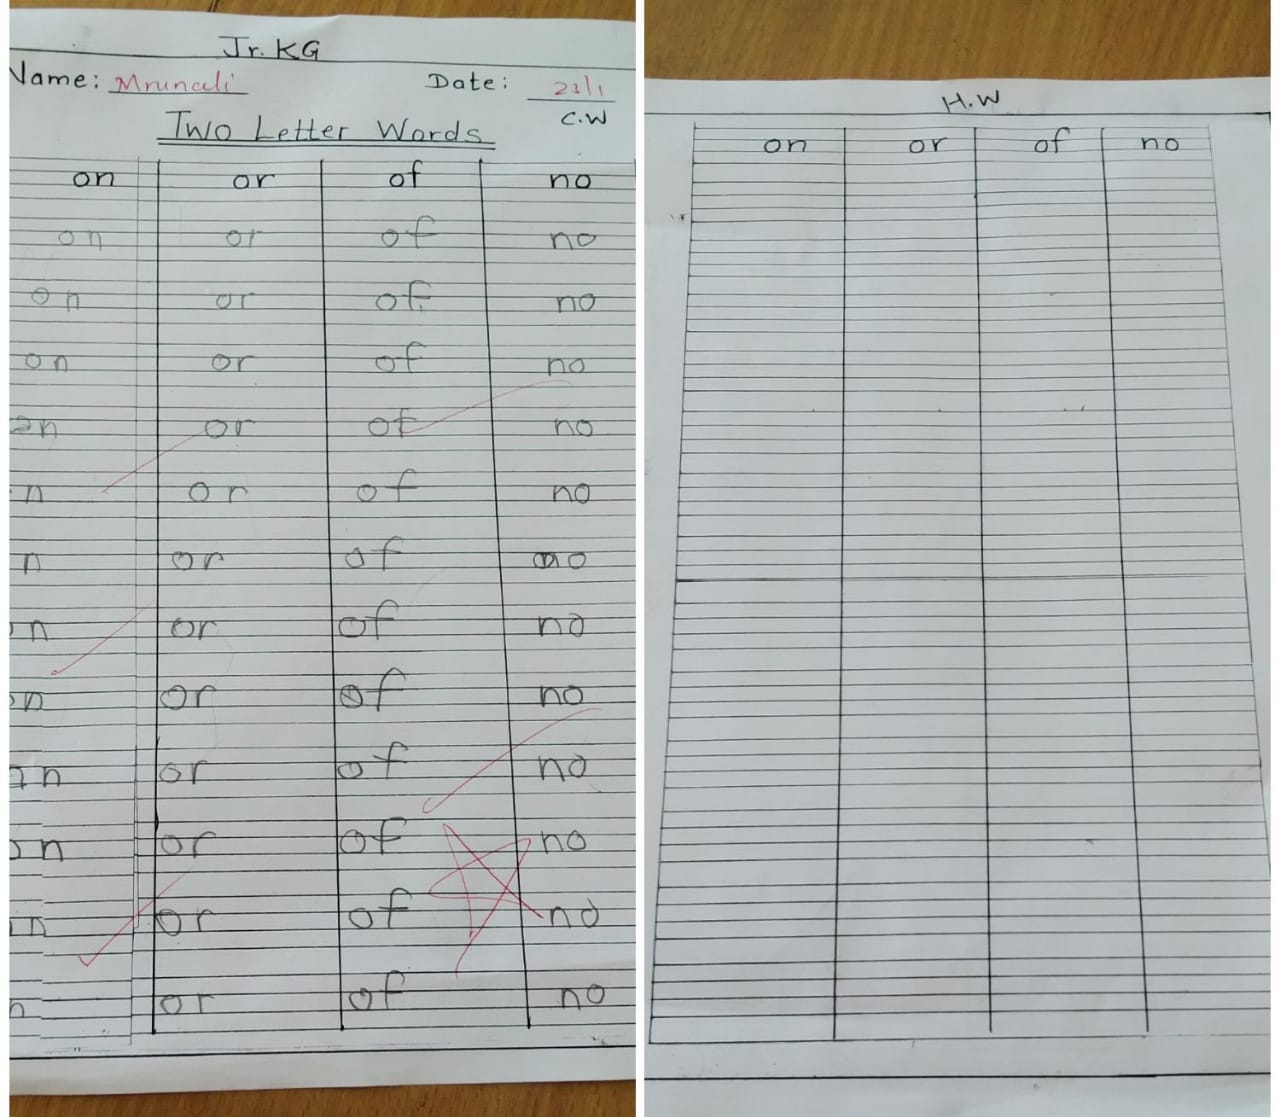 Jr. KG
Name: Mrunali Date: 23/1
C.W
Two Letter Words
on or of no
on or of no
on or of no
on or of no
on or of no
n or of no
n or of no
on or of no
on or of no
on or of no
on or of no
on or of no
n or of no
H.W
on or of no